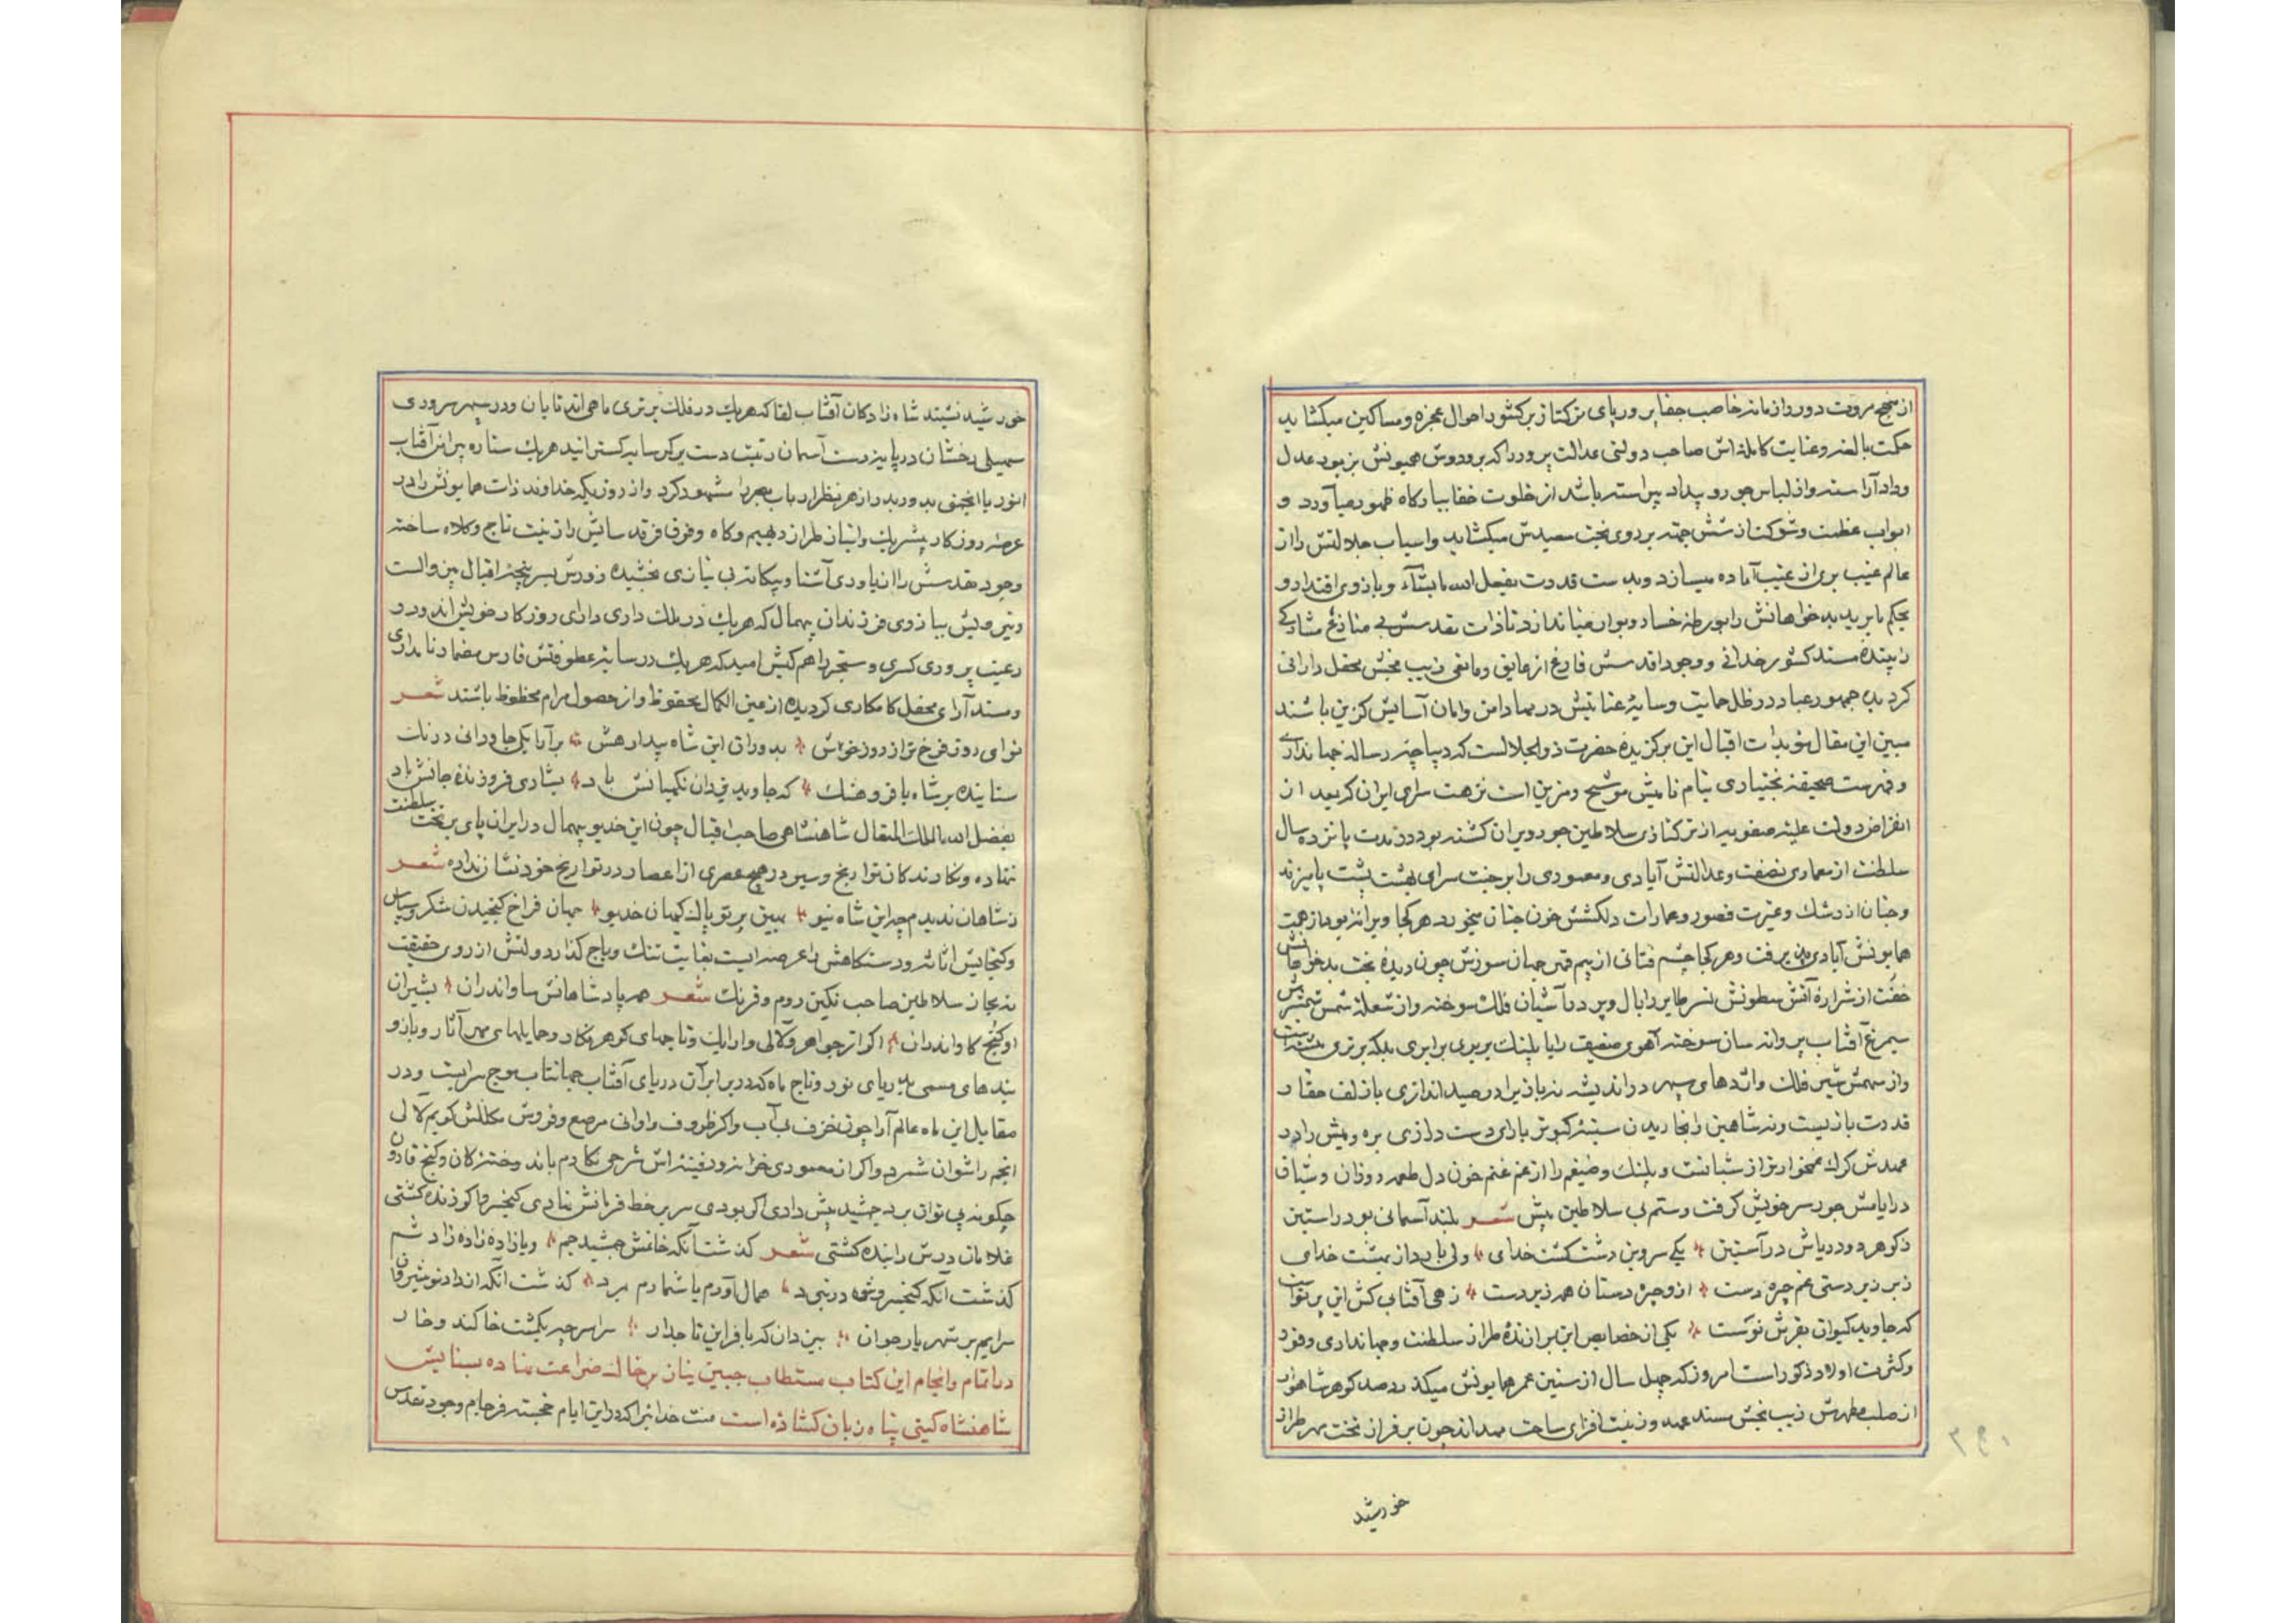 از نهج مروت دور و از مانه خاصب جفاپرور پای ترکتاز بر کشور احوال عجزه و مساکین میکشاید
حکمت بالغه و عنایت کامله اش صاحب دولتی عدالت پرور را که بر و دوش همیونش بزیور عدل
و داد آراسته و از لباس جور و بیداد پیراسته باشد از خلوت خفا ببارکاه ظهور میآورد و
ابواب عظمت و شوکت از شش جهته بر روی بخت سعیدش میکشاید و اسباب جلالتش را از
عالم غیب بری از عیب آماده میسازد و بدست قدرت یفعل الله ما یشآء و بازوی اقتدار و
یحکم ما یرید بدخواهانش را بورطه خسار و بوار میاندازد تا ذات مقدسش بی منازع مشارکی
راینده مسند کشور خدائی و وجود اقدسش فارغ از عایق و مانعی زیب بخش محفل دارائی
کردیده جمهور عباد در ظل حمایت و سایهٔ عنایتش در مهاد امن و امان آسایش کزین باشند
مبین این مقال مؤیدات اقبال این برکزیدهٔ حضرت ذوالجلالست که دیباچه رساله جهانداری
و فهرست صحیفه بختیاری بنام نامیش موشح و مزین است نزهت سرای ایران که بعد از
انقراض دولت علیّه صفویه از ترکتازی سلاطین جور ویران کشته بود در مدت پانزده سال
سلطنت از معماری نصفت و عدالتش آبادی و معموری را بر جنت سرای بهشت پشت پا میزند
و جنان از رشک و غیرت قصور و عمارات دلکشش خون جنان میخورد هر کجا ویرانه بود از همت
همایونش آبادی پذیرفت و هر کجا چشم فتانی از بیم قهر جهان سوزش چون دیدهٔ بخت بدخواهانش
خفت از شرارهٔ آتش سطوتش نسر طایر را بال و پر در آشیان فلک سوخته و از شعلهٔ شمس شمشیرش
سیمرغ آفتاب پروانه سان سوخته آهوی ضعیف را با پلنک بربری برابری بلکه برتری
و از سهمش شیر فلک و اژدهای سپهر در اندیشه نه باز را در صید اندازی باز لف حقار
قدرت بازیست و نه شاهین را بخاریدن سینهٔ کبوتر یارای دست درازی بره و میش را در
عهدش کرک غمخوار تر از شبانست و پلنک و ضیغم را از غم غنم خون دل طعمه روزان و شبان
در ایامش جور سر خویش کرفت و ستم پی سلاطین پیش شعر بلند آسمانی بود راستین
ز کوهر دو دریاش در آستین یکی سرو بن دشت کشت خدای ولی باردار بهشت خدای
زبر زیر دستی غم چره دست ازو چره دستان همه زیردست زهی آفتابی کش این پرتوست
که جاوید کیوان بفرش نوست یکی از خصایص این برازندهٔ طراز سلطنت و جهانداری وفور
و کثرت اولاد ذکور است امروز که چهل سال از سنین عمر همایونش میکذرد صد کوهر شاهوار
از صلب مطهرش زیب بخش مسند عهد و زینت افزای ساحت مهداند چون بر فراز تخت مهر طراز
خورشید
خورشید نشیند شاه زادکان آفتاب لقا که هریک در فلک برتری ماهی اند تابان و در سپهر سروری
سهیلی رخشان در پایه زدست آسمان رتبت دست بر کمر سایه کسترانید هریک ستاره پیرامن آفتاب
انور یا انجمی بدور بدر ازهر نظر ارباب بصر را مشهود کرد و از روزیکه خداوند ذات همایونش را در
عرصه روزکار پیشریک و انباز طراز دیهیم و کاه و فرق فرقد سایش را زینت تاج و کلاه ساخته
وجود مقدسش را از یاوری آشنا و بیکانه بی نیازی بخشیده زورش بسر پنجه اقبال بین والست
و نیرویش ببازوی فرزندان بیهمال که هریک در ملک داری دارای روزکار خویش اند و در
رعیت پروری کسری و سنجر را هم کیش امید که هریک در سایهٔ عطوفتش فارس مضمار نامداری
و مسند آرای محفل کامکاری کردیده از عین الکمال محفوظ و از حصول مرام محظوظ باشند شعر
نوای روز فرخ تر از روز خویش بدوران این شاه بیدار هش بر آرا یکی جاودانی درنک
ستاینده بر شاه با فر و هنک که جاوید یزدان نکهبانش باد بشادی فروزندهٔ جانش باد
بفضل الله الملک المتعال شاهنشاهی صاحب اقبال چون این خدیو بیهمال در ایران پای بر تخت سلطنت
ننهاده و نکارندکان تواریخ و سیر در هیچ عصری از اعصار در تواریخ خود نشان نداده شعر
ز شاهان ندیدم چو این شاه نیو ببین پرتو پاک کیهان خدیو جهان فراخ کنجیدن شکر و سپاس
و کنجایش اثاثه و دستکاهش را عرصه ایست بغایت تنک و باج کذار دولتش از روی حقیقت
نه بجان سلاطین صاحب نکین روم و فرنک شعر همه پادشاهانش ساو اندران بشیران
او کنج کاو اندران اکر از جواهر و لآلی و ارایک و تاجهای کوهر نکار و حمایلهای مهر آثار و بازو
بندهای مسمی بدریای نور و تاج ماه که در برابر آن دریای آفتاب جهانتاب موج سرابیست و در
مقابل این ماه عالم آرا چون خزف بی آب و اکر ظروف و اوانی مرصع و فروش مکللش کویم لآلی
انجم را شوان شمرد و اکر از معموری خزانه و دفینه اش شرحی نکارم باند وخته کان و کنج قارون
چکونه پی توان برد جمشید پیش دادی اکر بودی سر بر خط فرمانش نهادی کیخسرو اکر زنده کشتی
غلامان درش را بنده کشتی شعر کذشت آنکه خانمش جمشید جم و یا زادهٔ زاده زاد شم
کذشت آنکه کیخسروش در نبرد همال آورم یا شمارم مرد کذشت آنکه از داد نوشیروان
سرایم بر شهریار جوان ببین دان که با فر این تاجدار سراسر چه یکمشت خاکند و خار
در اتمام و انجام این کتاب مستطاب جبین نیاز بر خاک ضراعت نهاده بستایش
شاهنشاه کیتی پناه زبان کشاده است منت خدایرا که در این ایام خجسته فرجام وجود مقدس